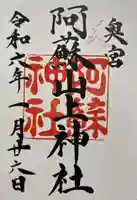 奥宮
阿蘇山上神社
阿蘇神社
令和六年一月廿六日